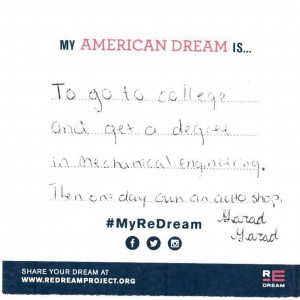 MY AMERICAN DREAM IS...
To go to college
and get a degree
in mechanical engineering.
Then one day own an auto shop.
#MyReDream
Garad
Garad
SHARE YOUR DREAM AT
WWW.REDREAMPROJECT.ORG
RE
DREAM